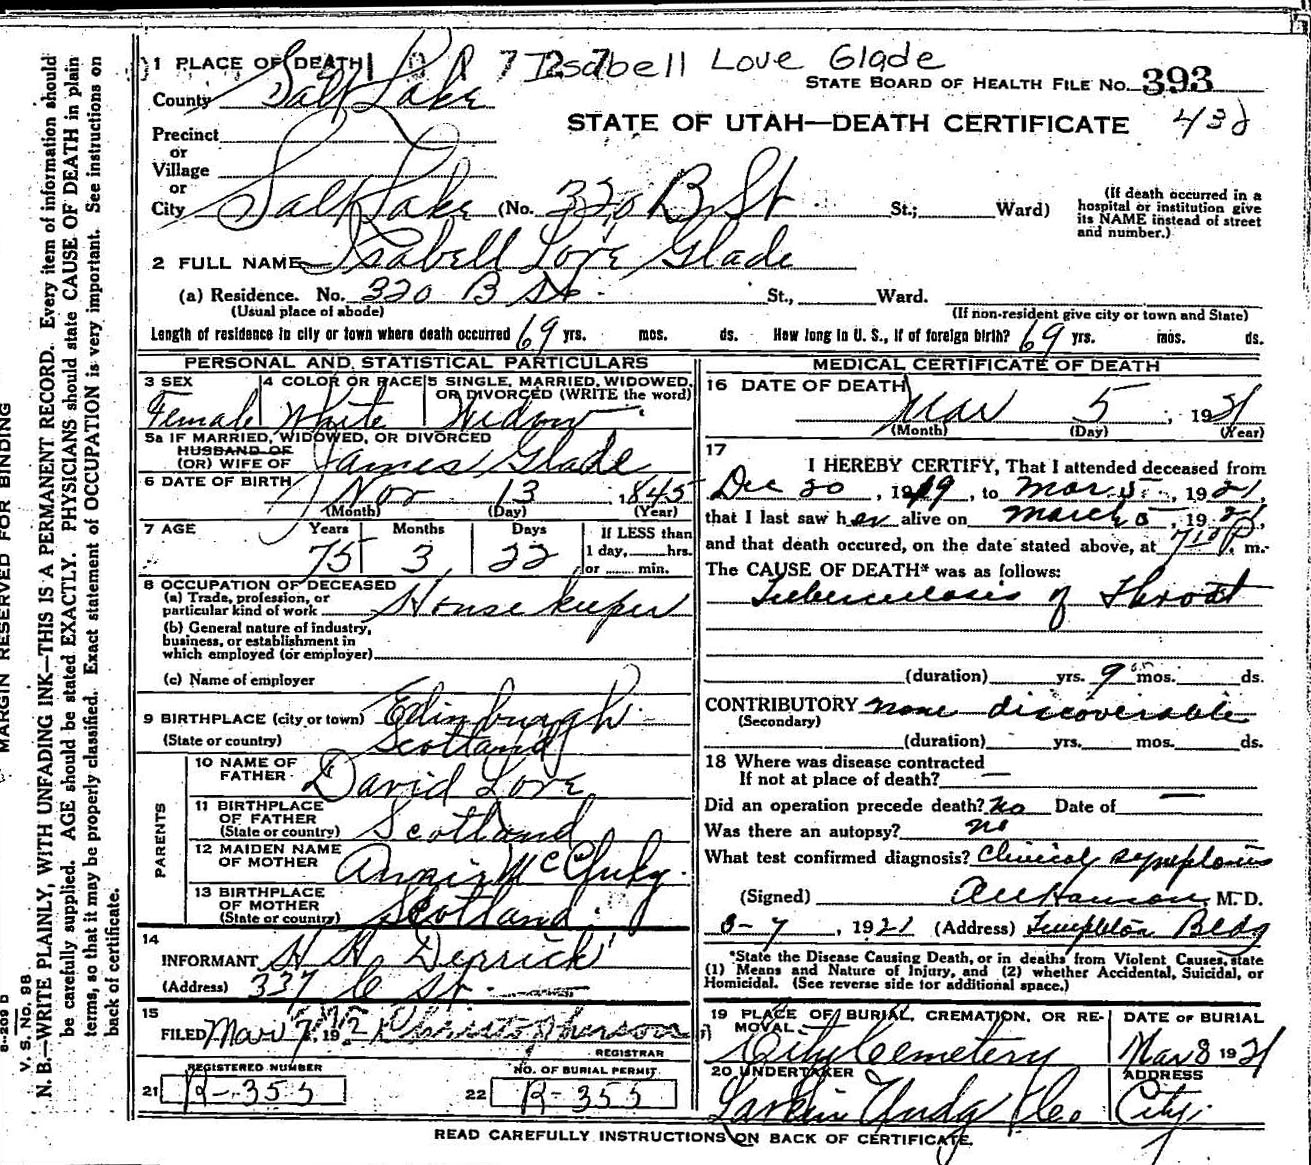 Isabell Love Glade
1 PLACE OF DEATH
STATE BOARD OF HEALTH FILE No. 393
County Salt Lake
STATE OF UTAH—DEATH CERTIFICATE 432
Precinct
or
Village
or
City Salt Lake (No. 320 B St St.; Ward)
(If death occurred in a hospital or institution give its NAME instead of street and number.)
2 FULL NAME Isabell Love Glade
(a) Residence. No. 320 B St. St., Ward.
(Usual place of abode) (If non-resident give city or town and State)
Length of residence in city or town where death occurred 69 yrs. mos. ds. How long in U. S., if of foreign birth? 69 yrs. mos. ds.
PERSONAL AND STATISTICAL PARTICULARS
3 SEX 4 COLOR OR RACE 5 SINGLE, MARRIED, WIDOWED,
OR DIVORCED (WRITE the word)
Female White Widow
5a IF MARRIED, WIDOWED, OR DIVORCED
HUSBAND OF
(OR) WIFE OF James Glade
6 DATE OF BIRTH Nov 13 1845
(Month) (Day) (Year)
7 AGE Years Months Days If LESS than
75 3 22 1 day, hrs.
or min.
8 OCCUPATION OF DECEASED
(a) Trade, profession, or
particular kind of work House keeper
(b) General nature of industry,
business, or establishment in
which employed (or employer)
(c) Name of employer
9 BIRTHPLACE (city or town) Edinburgh
(State or country) Scotland
PARENTS
10 NAME OF
FATHER David Love
11 BIRTHPLACE
OF FATHER
(State or country) Scotland
12 MAIDEN NAME
OF MOTHER Annie
13 BIRTHPLACE
OF MOTHER
(State or country) Scotland
14
INFORMANT H H Derrick
(Address) 337 C St.
15
FILED Mar 7, 1921 Christopherson
REGISTRAR
REGISTERED NUMBER NO. OF BURIAL PERMIT.
21 R-355 22 R-355
MEDICAL CERTIFICATE OF DEATH
16 DATE OF DEATH
Mar 5, 1921
(Month) (Day) (Year)
17
I HEREBY CERTIFY, That I attended deceased from
Dec 20, 1919, to Mar 5, 1921,
that I last saw her alive on March 5, 1921,
and that death occured, on the date stated above, at P. m.
The CAUSE OF DEATH* was as follows:
Tuberculosis of Throat
(duration) yrs. 9 mos. ds.
CONTRIBUTORY none discoverable
(Secondary)
(duration) yrs. mos. ds.
18 Where was disease contracted
If not at place of death? —
Did an operation precede death? No Date of —
Was there an autopsy? no
What test confirmed diagnosis? Clinical symptoms
(Signed) M. D.
3-7, 1921 (Address) Templeton Bldg
*State the Disease Causing Death, or in deaths from Violent Causes, state
(1) Means and Nature of Injury, and (2) whether Accidental, Suicidal, or
Homicidal. (See reverse side for additional space.)
19 PLACE OF BURIAL, CREMATION, OR RE-
MOVAL. DATE OF BURIAL
City Cemetery Mar 8 1921
20 UNDERTAKER ADDRESS
Larkin Undg Co City
READ CAREFULLY INSTRUCTIONS ON BACK OF CERTIFICATE.
MARGIN RESERVED FOR BINDING
V. S. No. 98
N. B.—WRITE PLAINLY, WITH UNFADING INK—THIS IS A PERMANENT RECORD. Every item of information should
be carefully supplied. AGE should be stated EXACTLY. PHYSICIANS should state CAUSE OF DEATH in plain
terms, so that it may be properly classified. Exact statement of OCCUPATION is very important. See instructions on
back of certificate.